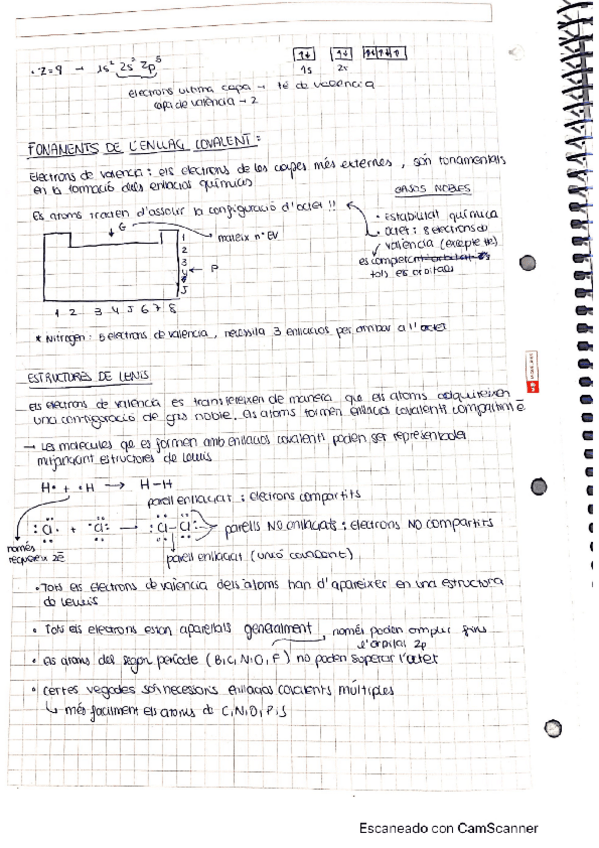 · Z=9 → 1s² 2s² 2p⁵
1s 2s
electrons ultima capa → 1e de valencia
capa de valència → 2
FONAMENTS DE L'ENLLAÇ COVALENT:
Electrons de valencia: els electrons de les capes més externes, són fonamentals
en la formació dels enllaços químics
GASOS NOBLES
Es atoms tracten d'assolir la configuració d'octet !!
· Estabilitat química
· octet: 8 electrons de
valència (excepte He)
tots es orbitals
G
mateix nº EV
1
2
3
4
5
P
1 2 3 4 5 6 7 8
* Nitrogen: 5 electrons de valencia, necessita 3 enllaços per arribar a l'octet
ESTRUCTURES DE LEWIS
Els electrons de valencia es transfereixen de manera que els atoms adquireixen
una configuració de gas noble. Es atoms formen enllaços covalents compartint ē
→ Les molecules que es formen amb enllaços covalents poden ser representades
mitjançant estructures de Lewis
H• + •H → H-H
parell enllaçat: electrons compartits
:Cl• + •Cl: → :Cl-Cl: parells NO enllaçats: electrons NO compartits
només
requereix 2ē
parell enllaçat (unió covalent)
· Tots es electrons de valencia dels atoms han d'apareixer en una estructura
de Lewis
· Tots els electrons estan aparellats generalment, només poden omplir fins
l'orbital 2p
· es atoms del segon període (B,C,N,O,F) no poden superar l'octet
· certes vegades són necessaris enllaços covalents múltiples
↳ més facilment els atoms de C,N,O,P,S
Escaneado con CamScanner